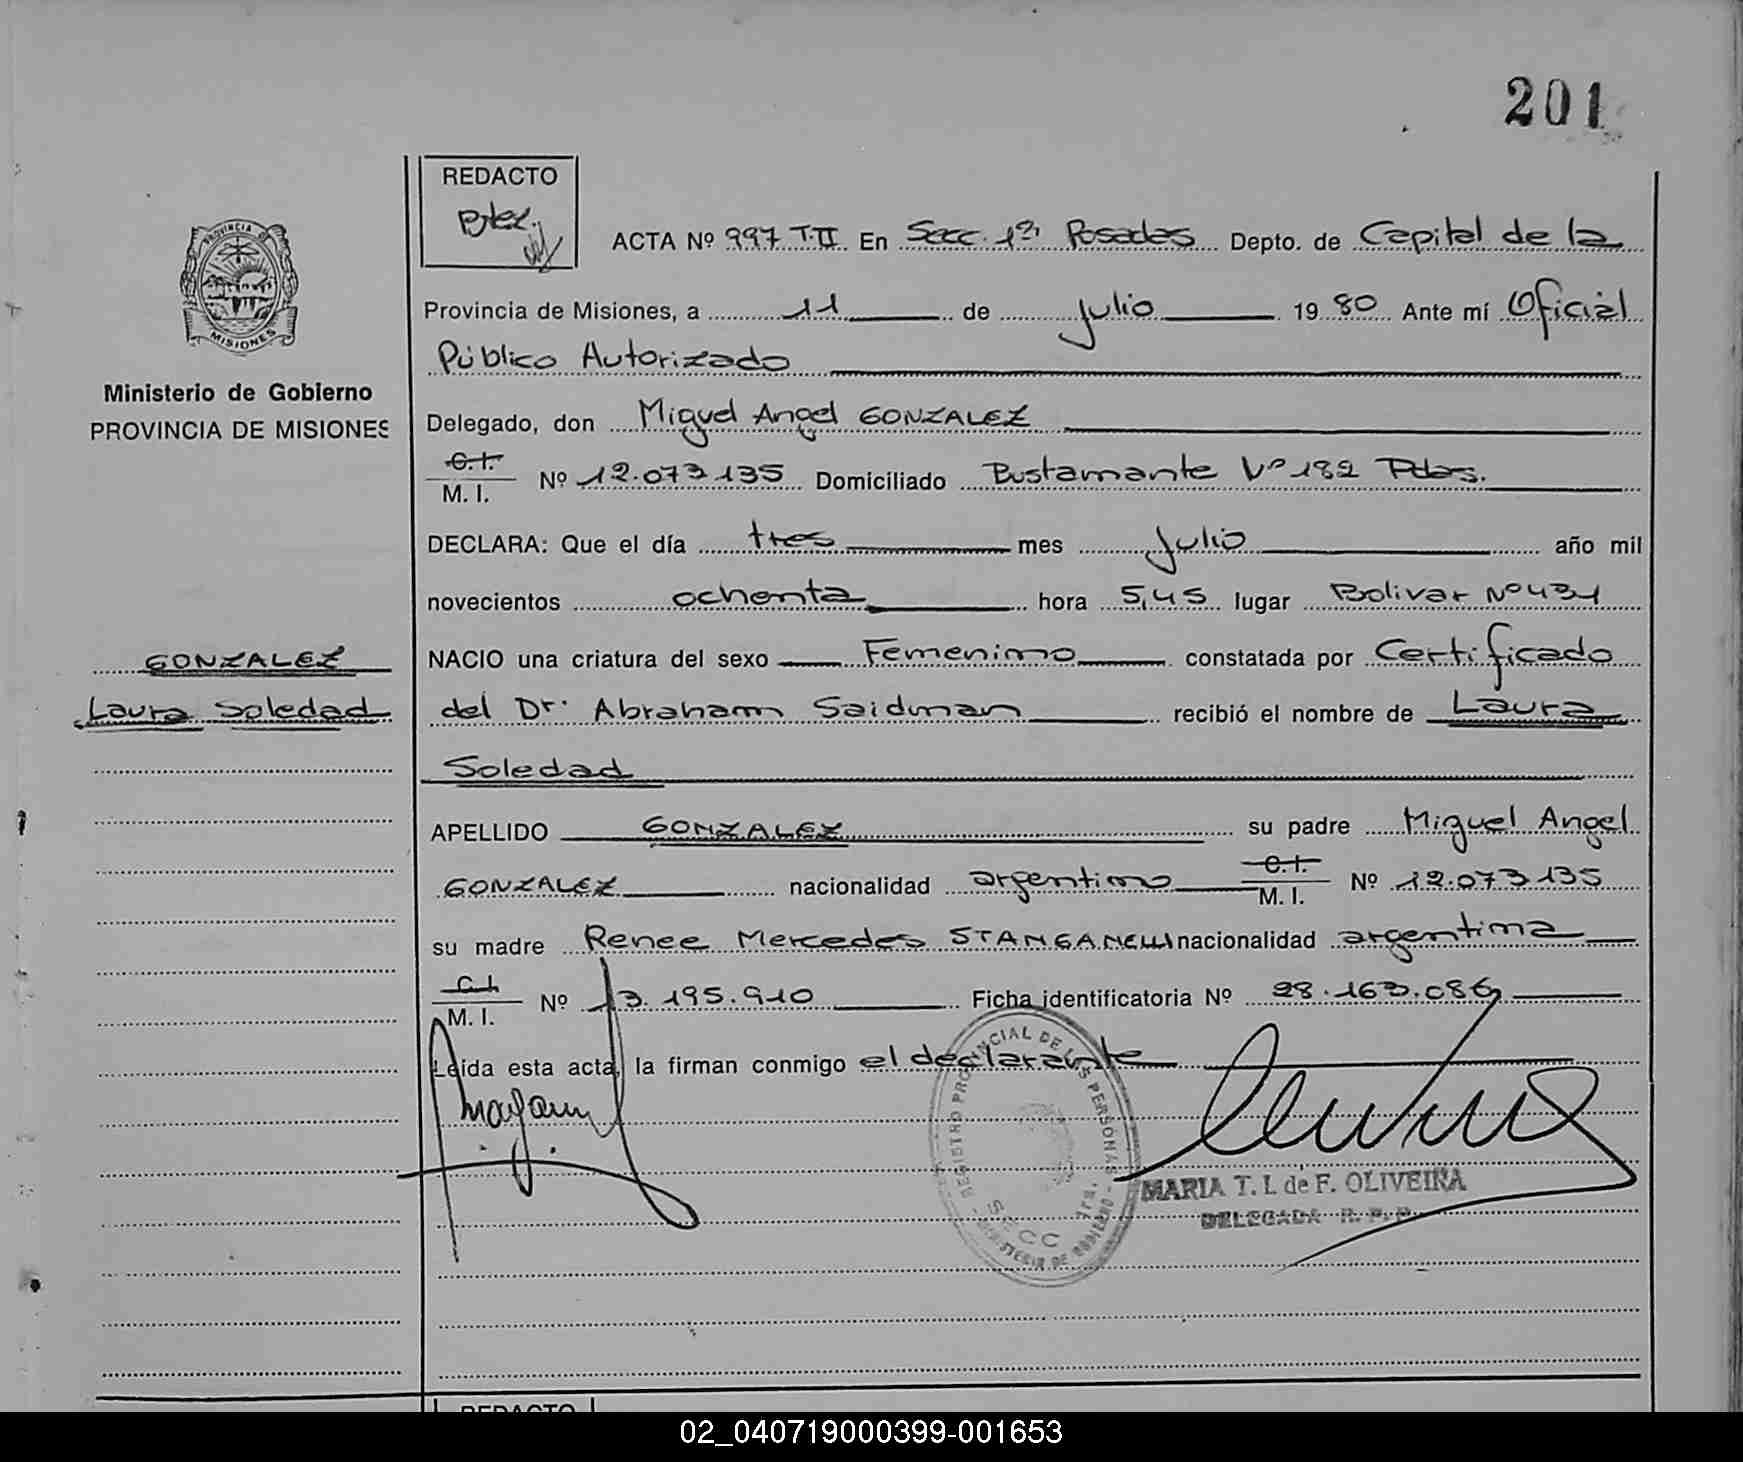 201
REDACTO
ACTA Nº 997 T.II En Secc. 1ª Posadas Depto. de Capital de la
Provincia de Misiones, a 11 de julio 1980 Ante mí Oficial
Público Autorizado
Delegado, don Miguel Angel GONZALEZ
C.I.
M. I. Nº 12.073135 Domiciliado Bustamante Nº 182 Pdas.
DECLARA: Que el día tres mes julio año mil
novecientos ochenta hora 5,45 lugar Bolivar Nº 431
NACIO una criatura del sexo Femenino constatada por Certificado
del Dr. Abraham Saidman recibió el nombre de Laura
Soledad
APELLIDO GONZALEZ su padre Miguel Angel
GONZALEZ nacionalidad argentino C.I. M. I. Nº 12.073135
su madre Renee Mercedes STANGANELLI nacionalidad argentina
C.I.
M. I. Nº 13.195.910 Ficha identificatoria Nº 28.163.086
Leída esta acta, la firman conmigo el declarante
PROVINCIA DE
MISIONES
Ministerio de Gobierno
PROVINCIA DE MISIONES
GONZALEZ
Laura Soledad
REGISTRO PROVINCIAL DE LAS PERSONAS
SECC 1ra.
MINISTERIO DE GOBIERNO
MARIA T. I. de F. OLIVEIRA
DELEGADA R. P. P.
REDACTO
02_040719000399-001653